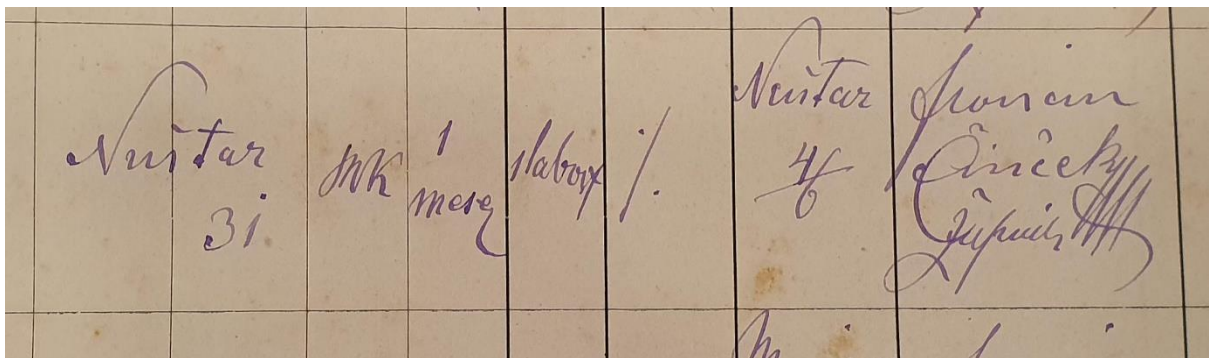 Nuštar
31.
MK
1
mesec
slabost
./.
Nuštar
4/6
Marian
Činček
Župnik